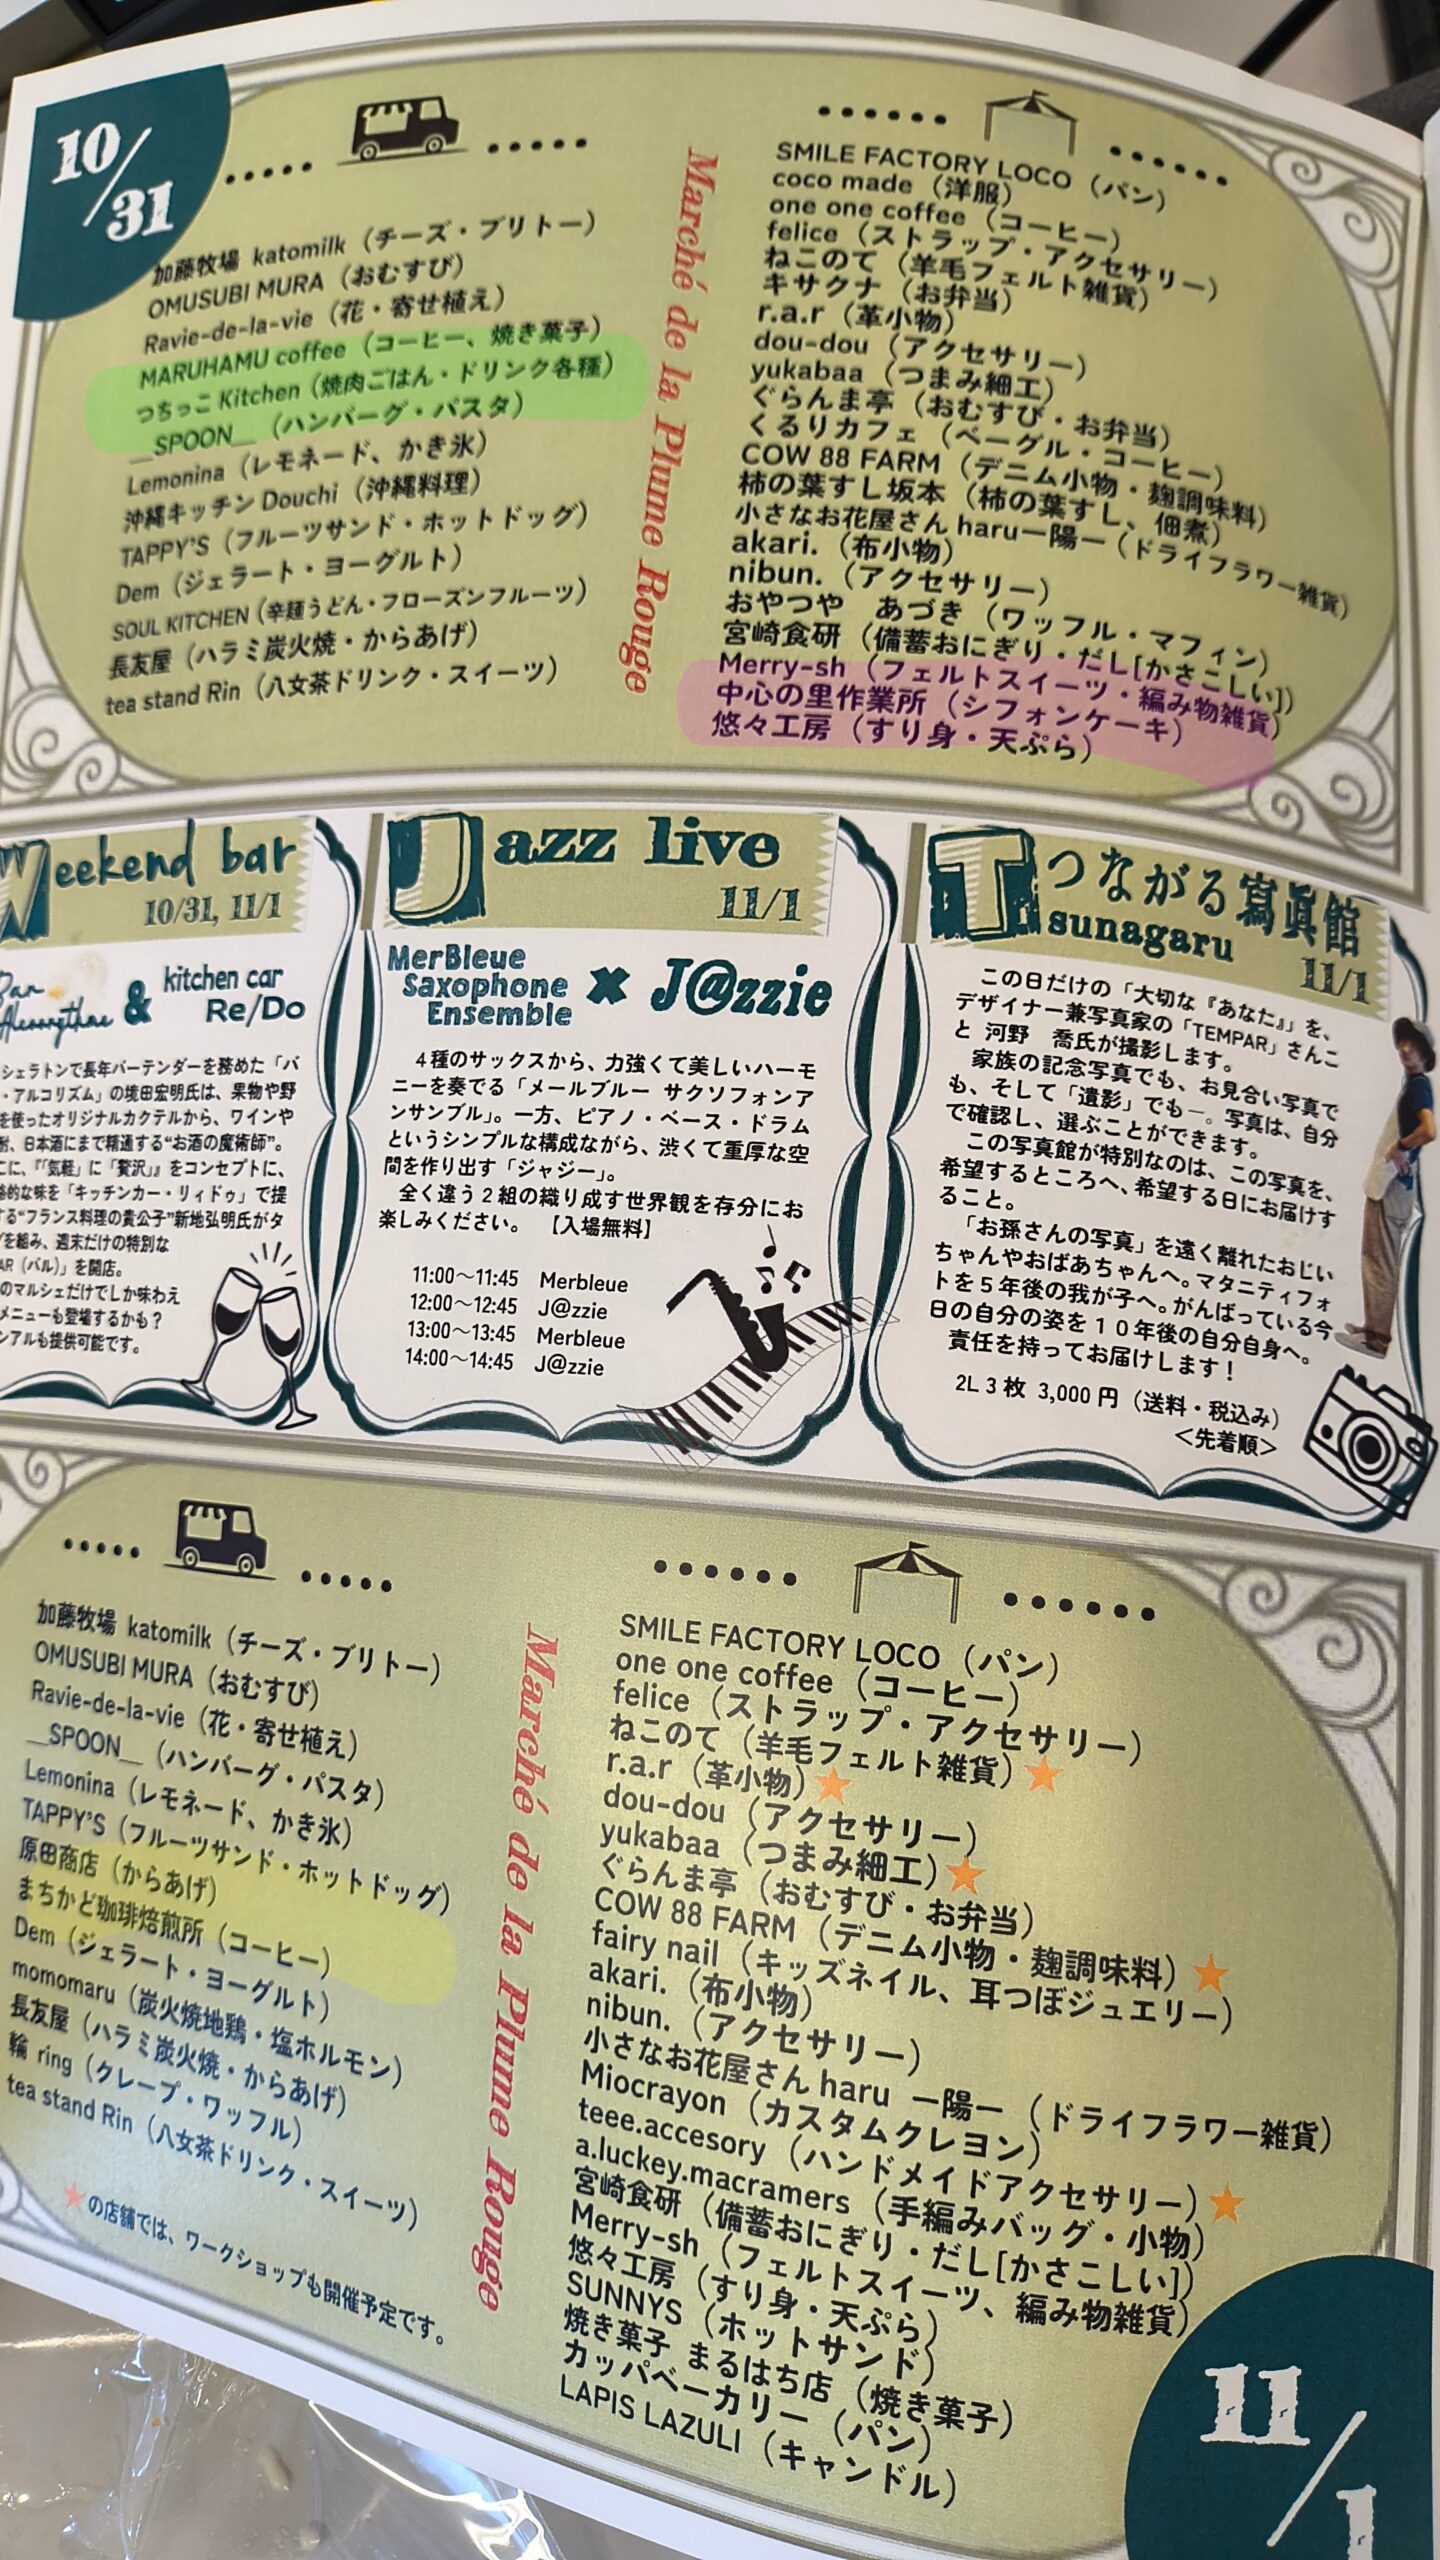 10/31
加藤牧場 katomilk（チーズ・ブリトー）
OMUSUBI MURA（おむすび）
Ravie-de-la-vie（花・寄せ植え）
MARUHAMU coffee（コーヒー、焼き菓子）
つちっこ Kitchen（焼肉ごはん・ドリンク各種）
＿SPOON＿（ハンバーグ・パスタ）
Lemonina（レモネード、かき氷）
沖縄キッチン Douchi（沖縄料理）
TAPPY'S（フルーツサンド・ホットドッグ）
Dem（ジェラート・ヨーグルト）
SOUL KITCHEN（辛麺うどん・フローズンフルーツ）
長友屋（ハラミ炭火焼・からあげ）
tea stand Rin（八女茶ドリンク・スイーツ）
Marché de la Plume Rouge
SMILE FACTORY LOCO（パン）
coco made（洋服）
one one coffee（コーヒー）
felice（ストラップ・アクセサリー）
ねこのて（羊毛フェルト雑貨）
キサクナ（お弁当）
r.a.r（革小物）
dou-dou（アクセサリー）
yukabaa（つまみ細工）
ぐらんま亭（おむすび・お弁当）
くるりカフェ（ベーグル・コーヒー）
COW 88 FARM（デニム小物・麹調味料）
柿の葉すし坂本（柿の葉すし、佃煮）
小さなお花屋さん haru一陽一（ドライフラワー雑貨）
akari.（布小物）
nibun.（アクセサリー）
おやつや　あづき（ワッフル・マフィン）
宮崎食研（備蓄おにぎり・だし[かさこしい]）
Merry-sh（フェルトスイーツ・編み物雑貨）
中心の里作業所（シフォンケーキ）
悠々工房（すり身・天ぷら）
Weekend bar
10/31, 11/1
Bar
& kitchen car
Re/Do
シェラトンで長年バーテンダーを務めた「バ
・アルコリズム」の境田宏明氏は、果物や野
を使ったオリジナルカクテルから、ワインや
耐、日本酒にまで精通する“お酒の魔術師”。
こに、『「気軽」に「贅沢」』をコンセプトに、
格的な味を「キッチンカー・リィドゥ」で提
する“フランス料理の貴公子”新地弘明氏がタ
グを組み、週末だけの特別な
AR（バル）」を開店。
のマルシェだけでしか味わえ
メニューも登場するかも？
ンアルも提供可能です。
Jazz live
11/1
MerBleue
Saxophone
Ensemble
× J@zzie
４種のサックスから、力強くて美しいハーモ
ニーを奏でる「メールブルー サクソフォンア
ンサンブル」。一方、ピアノ・ベース・ドラム
というシンプルな構成ながら、渋くて重厚な空
間を作り出す「ジャジー」。
全く違う２組の織り成す世界観を存分にお
楽しみください。【入場無料】
11:00～11:45 Merbleue
12:00～12:45 J@zzie
13:00～13:45 Merbleue
14:00～14:45 J@zzie
つながる寫眞館
Tsunagaru
11/1
この日だけの「大切な『あなた』」を、
デザイナー兼写真家の「TEMPAR」さんこ
と 河野　喬氏が撮影します。
家族の記念写真でも、お見合い写真で
も、そして「遺影」でも―。写真は、自分
で確認し、選ぶことができます。
この写真館が特別なのは、この写真を、
希望するところへ、希望する日にお届けす
ること。
「お孫さんの写真」を遠く離れたおじい
ちゃんやおばあちゃんへ。マタニティフォ
トを５年後の我が子へ。がんばっている今
日の自分の姿を１０年後の自分自身へ。
責任を持ってお届けします！
2L 3 枚 3,000 円（送料・税込み）
＜先着順＞
加藤牧場 katomilk（チーズ・ブリトー）
OMUSUBI MURA（おむすび）
Ravie-de-la-vie（花・寄せ植え）
＿SPOON＿（ハンバーグ・パスタ）
Lemonina（レモネード、かき氷）
TAPPY'S（フルーツサンド・ホットドッグ）
原田商店（からあげ）
まちかど珈琲焙煎所（コーヒー）
Dem（ジェラート・ヨーグルト）
momomaru（炭火焼地鶏・塩ホルモン）
長友屋（ハラミ炭火焼・からあげ）
輪 ring（クレープ・ワッフル）
tea stand Rin（八女茶ドリンク・スイーツ）
★の店舗では、ワークショップも開催予定です。
Marché de la Plume Rouge
SMILE FACTORY LOCO（パン）
one one coffee（コーヒー）
felice（ストラップ・アクセサリー）
ねこのて（羊毛フェルト雑貨）★
r.a.r（革小物）★
dou-dou（アクセサリー）
yukabaa（つまみ細工）★
ぐらんま亭（おむすび・お弁当）
COW 88 FARM（デニム小物・麹調味料）★
fairy nail（キッズネイル、耳つぼジュエリー）
akari.（布小物）
nibun.（アクセサリー）
小さなお花屋さん haru 一陽一（ドライフラワー雑貨）
Miocrayon（カスタムクレヨン）
teee.accesory（ハンドメイドアクセサリー）★
a.luckey.macramers（手編みバッグ・小物）
宮崎食研（備蓄おにぎり・だし[かさこしい]）
Merry-sh（フェルトスイーツ、編み物雑貨）
悠々工房（すり身・天ぷら）
SUNNYS（ホットサンド）
焼き菓子 まるはち店（焼き菓子）
カッパベーカリー（パン）
LAPIS LAZULI（キャンドル）
11/1